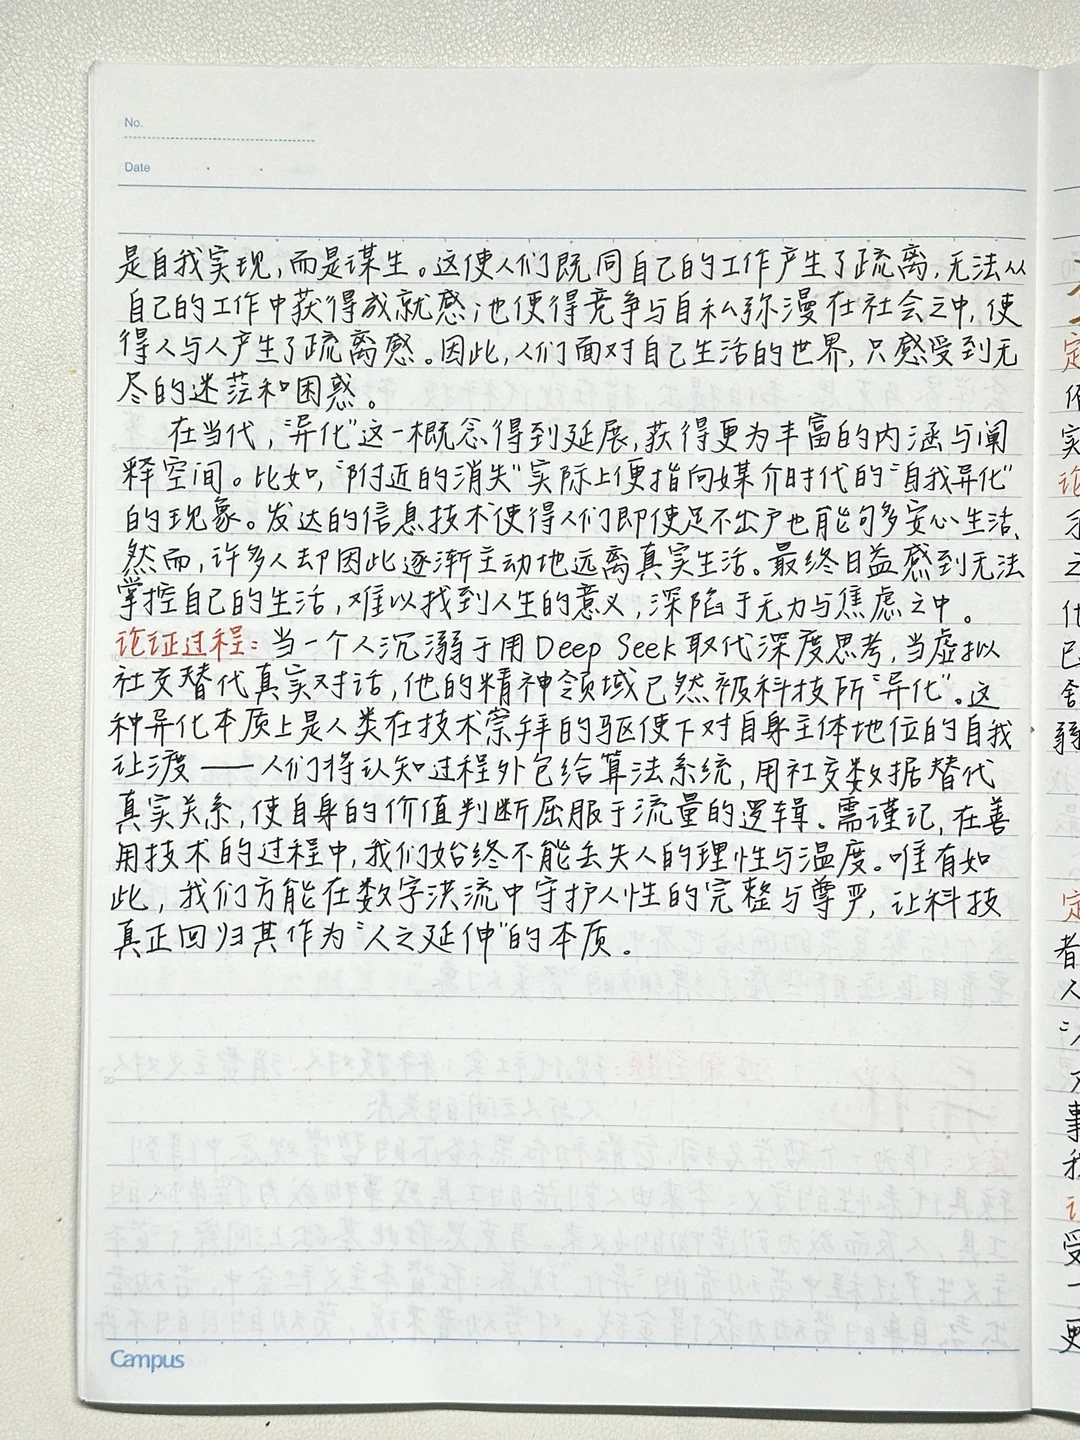 No.
Date
是自我实现,而是谋生。这使人们既同自己的工作产生了疏离,无法从
自己的工作中获得成就感;也使得竞争与自私弥漫在社会之中,使
得人与人产生了疏离感。因此,人们面对自己生活的世界,只感受到无
尽的迷茫和困惑。
在当代,“异化”这一概念得到延展,获得更为丰富的内涵与阐
释空间。比如,“附近的消失”实际上便指向媒介时代的“自我异化”
的现象。发达的信息技术使得人们即使足不出户也能句多安心生活、
然而,许多人却因此逐渐主动地远离真实生活。最终日益感到无法
掌控自己的生活,难以找到人生的意义,深陷于无力与焦虑之中。
论证过程:当一个人沉溺于用DeepSeek取代深度思考,当虚拟
社交替代真实对话,他的精神领域已然被科技所“异化”。这
种异化本质上是人类在技术崇拜的驱使下对自身主体地位的自我
让渡——人们将认知过程外包给算法系统,用社交数据替代
真实关系,使自身的价值判断屈服于流量的逻辑。需谨记,在善
用技术的过程中,我们始终不能丢失人的理性与温度。唯有如
此,我们方能在数字洪流中守护人性的完整与尊严,让科技
真正回归其作为“人之延伸”的本质。
20
Campus
定
实
论
之
化
已
舍
定
者
人
事
受
一
更